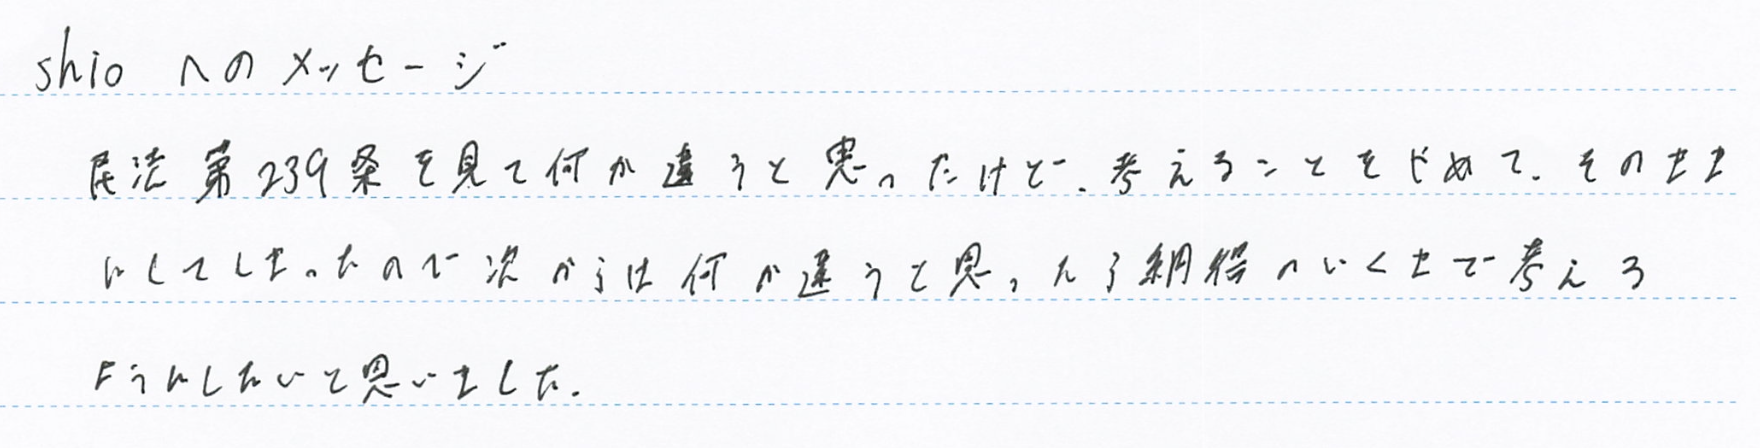 shio へのメッセージ
民法第239条を見て何か違うと思ったけど、考えることをやめて、そのまま
にしてしまったので次からは何か違うと思ったら納得のいくまで考える
ようにしたいと思いました。